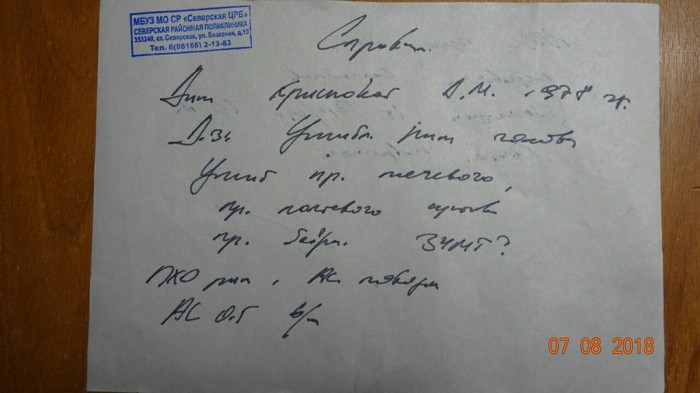 МБУЗ МО СР «Северская ЦРБ»
СЕВЕРСКАЯ РАЙОННАЯ ПОЛИКЛИНИКА
353240, ст. Северская, ул. Базарная, д.15
Тел. 8(86166) 2-13-83
Справка.
Д.М. 1978
Д-з: Ушибл. голов
Ушиб пр. плечевого,
пр. локтевого сустава
пр. бедра. ЗЧМТ?
ПХО ран, Ас. повязка
АС 0.5 в/м
07 08 2018